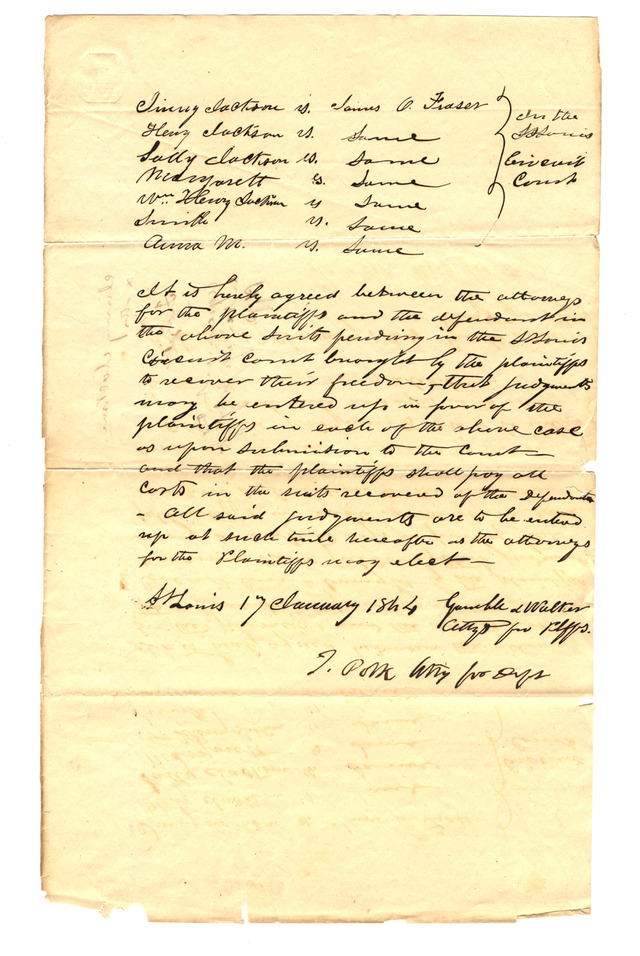 Jinny Jackson vs. James O. Fraser
Henry Jackson vs. Same
Sally Jackson vs. Same
Margarett vs. Same
Wm Henry Jackson vs Same
Smith vs. Same
Anna M. vs. Same
In the
St Louis
Circuit
Court
It is hereby agreed between the attorneys
for the plaintiffs and the defendant in
the above suits pending in the St Louis
Circuit court brought by the plaintiffs
to recover their freedom, that judgments
may be entered up in favor of the
plaintiffs in each of the above case
as upon submission to the court—
and that the plaintiffs shall pay all
costs in the suits recovered of the defendant
- All said judgments are to be entered
up at such time hereafter as the attorneys
for the Plaintiffs may elect —
St Louis 17 January 1844 Gamble & Walker
Attys for Plffs.
T. Polk Atty for Deft